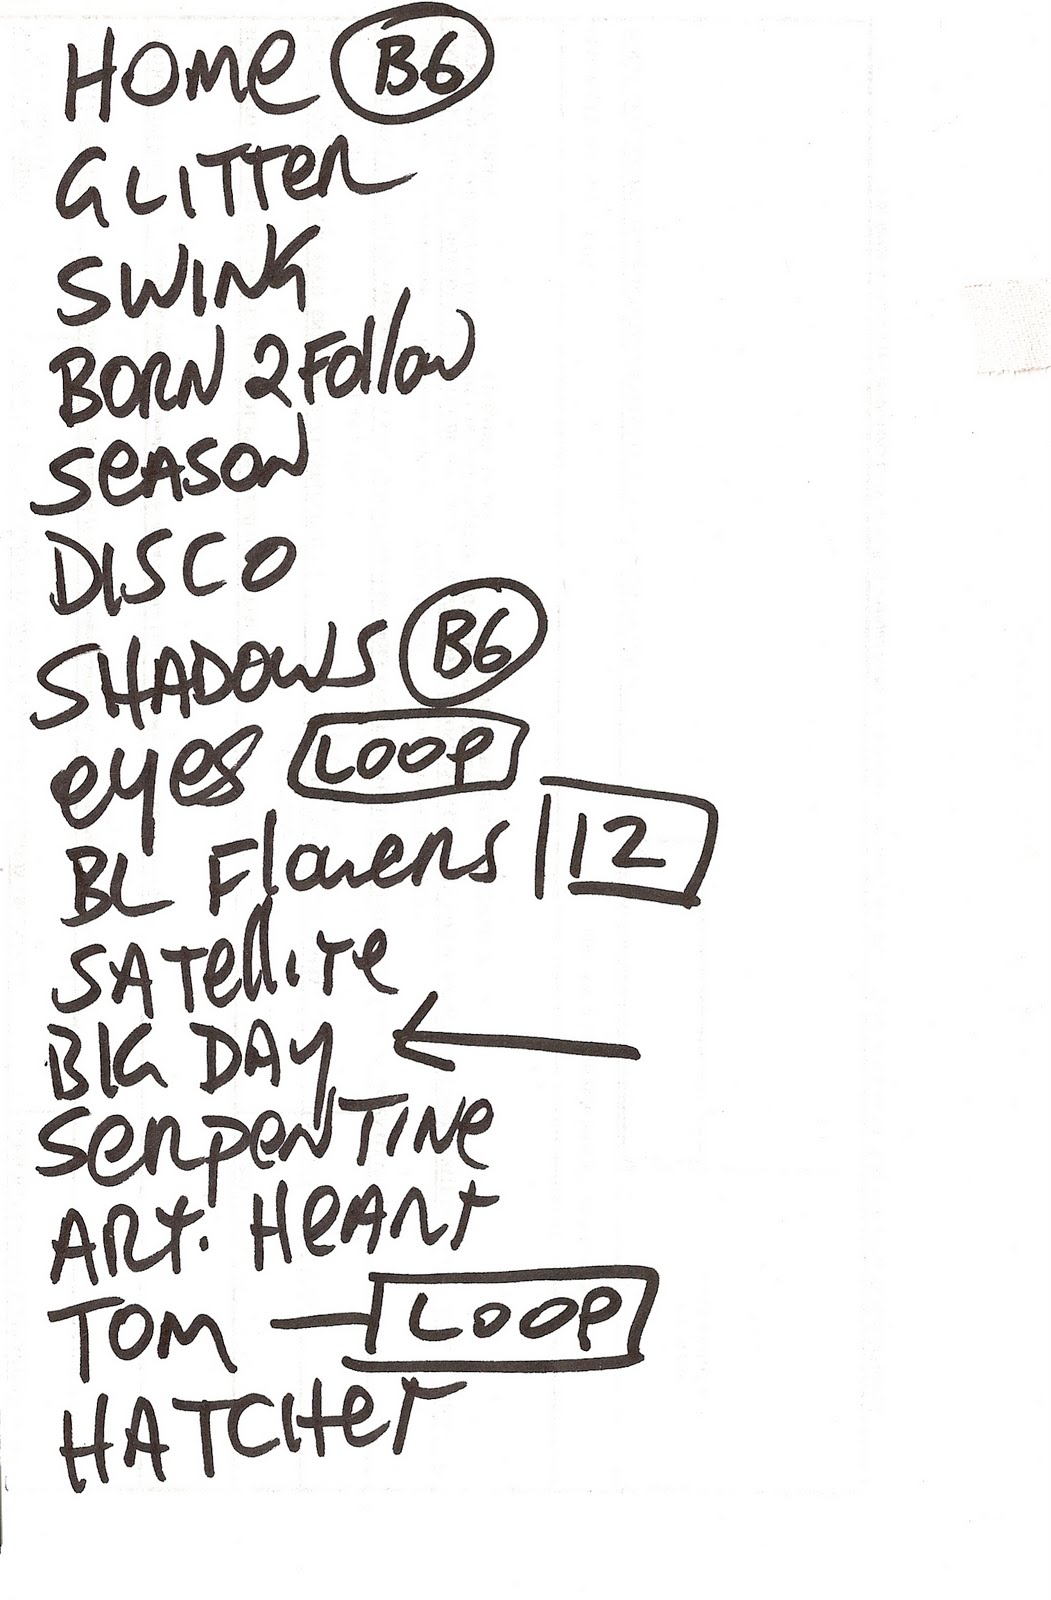 HOME B6
GLITTER
SWING
BORN 2 Follow
SEASON
DISCO
SHADOWS B6
eyes LOOP
BL Flowers 12
SATellite
BIG DAY
SERPENTINE
ART. HEART
TOM — LOOP
HATCHET